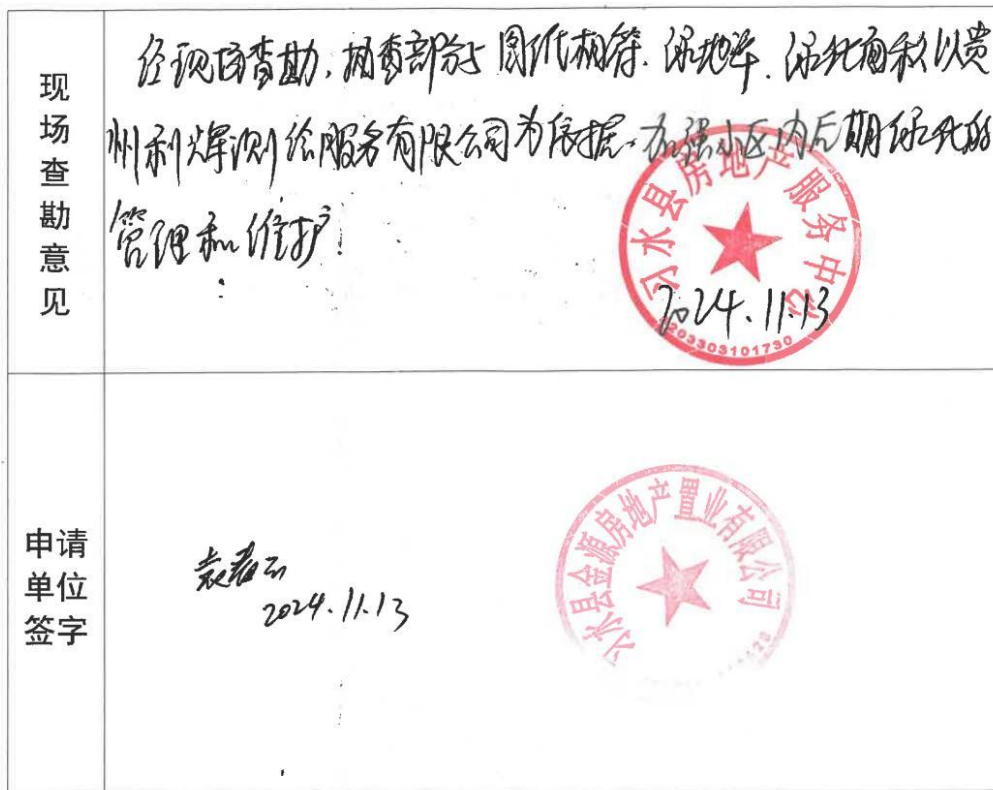 现场查勘意见
经现场查勘,抽查部分与图纸相符.绿地率.绿化面积以贵
州利辉测绘服务有限公司为依据.加强小区内后期绿化的
管理和维护!
习水县房地产服务中心
2024.11.13
5203303101730
申请
单位
签字
2024.11.13
习水县金源房地产置业有限公司